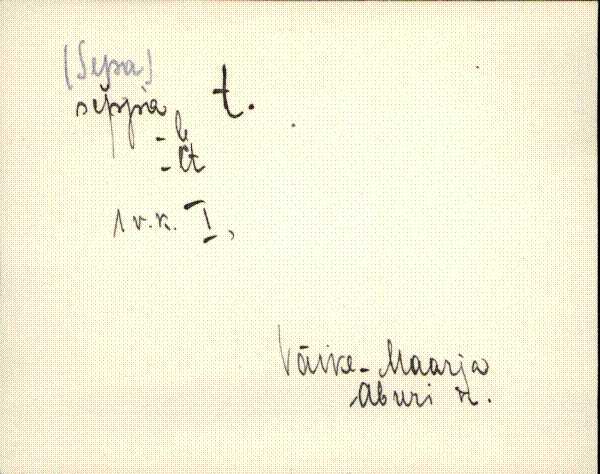 (Sepa)
sepjia t.
-le
-lt
1 v.k. I,
Väike-Maarja
Aburi k.